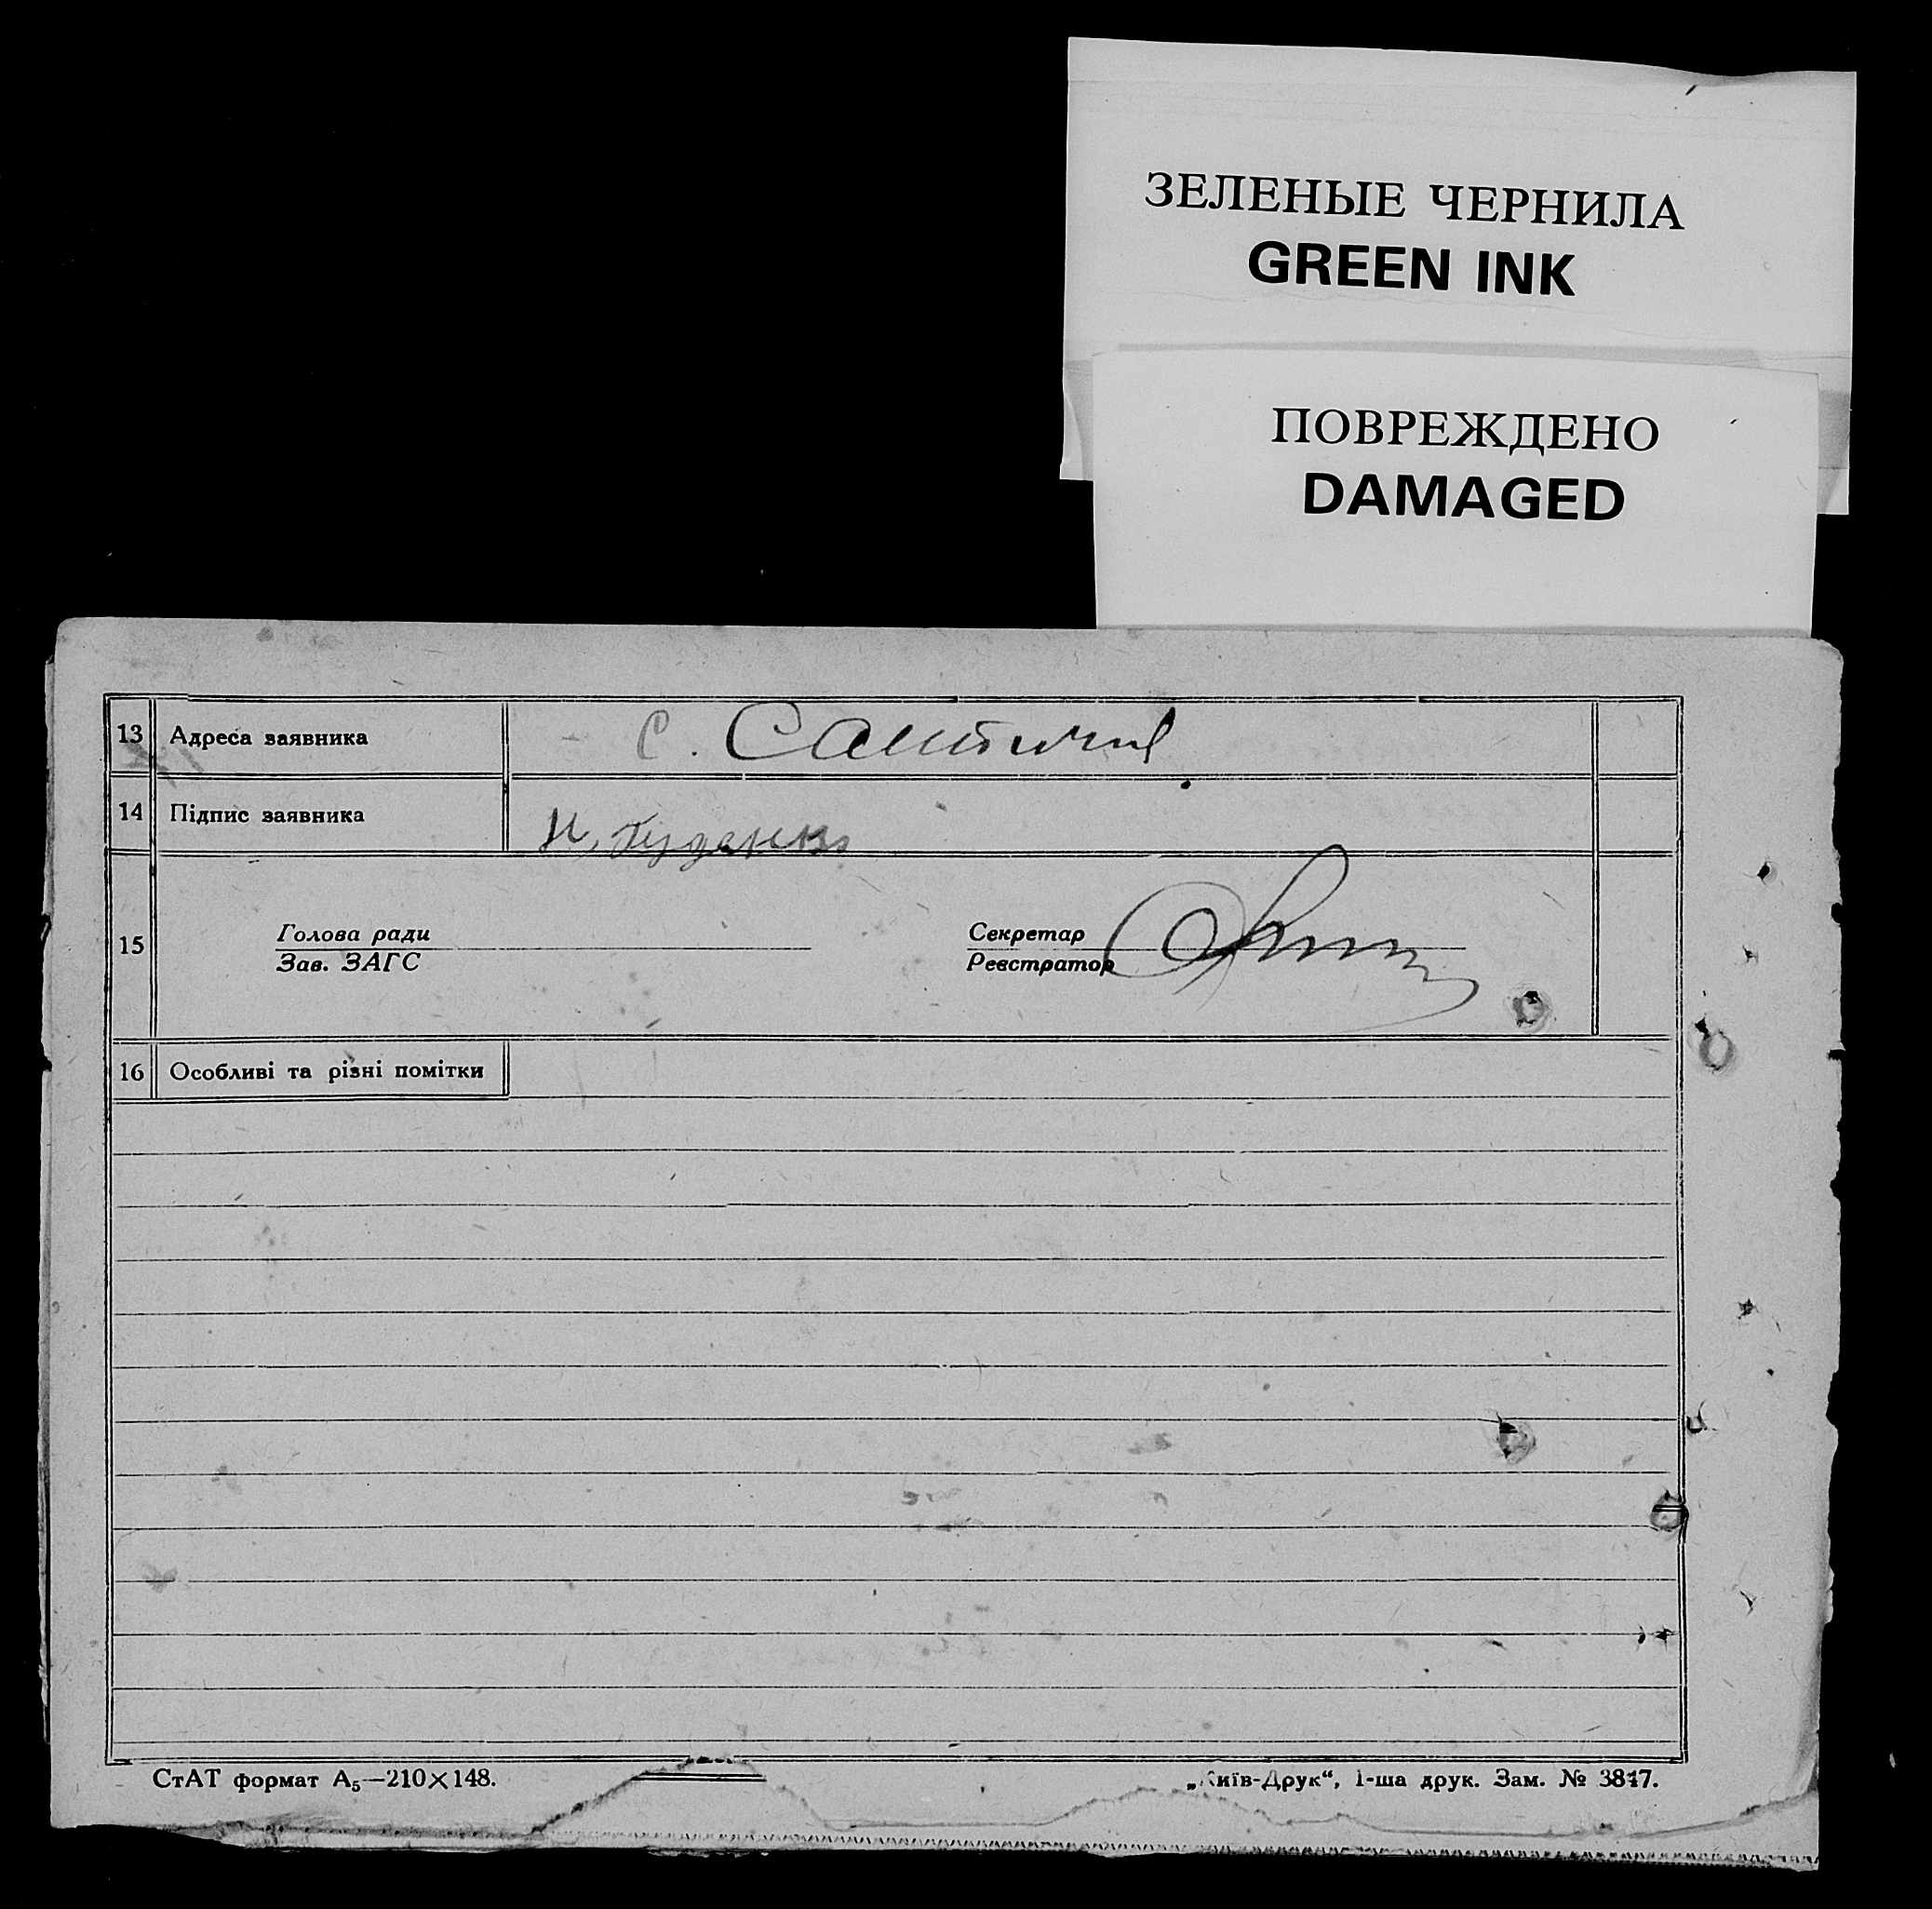 ЗЕЛЕНЫЕ ЧЕРНИЛА
GREEN INK
ПОВРЕЖДЕНО
DAMAGED
13 Адреса заявника с.
14 Підпис заявника
15 Голова ради
Зав. ЗАГС
Секретар
Реєстратор
16 Особливі та різні помітки
СтАТ формат А₅—210×148.
„Київ-Друк“, 1-ша друк. Зам. № 3847.